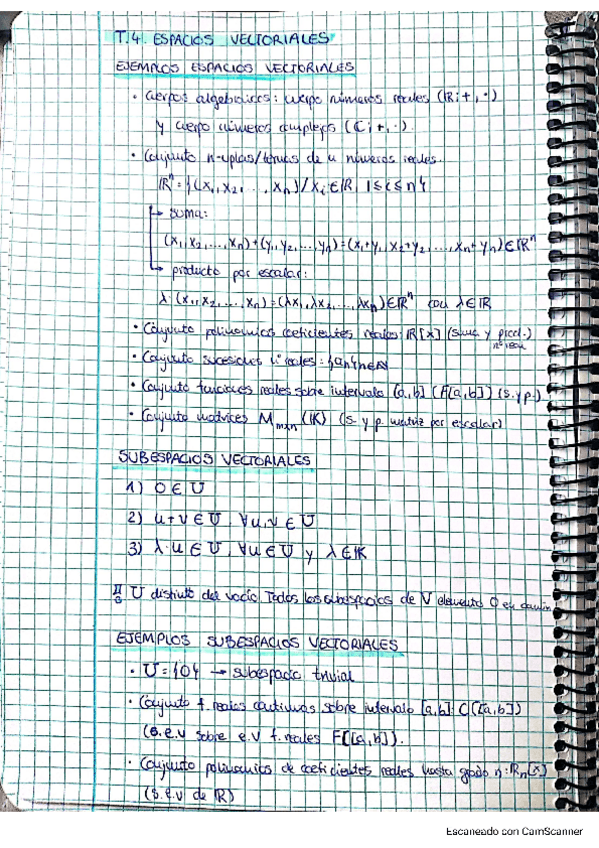 T.4. ESPACIOS VECTORIALES
EJEMPLOS ESPACIOS VECTORIALES
· Cuerpos algebraicos: cuerpo números reales (ℝ; +, ·)
y cuerpo números complejos (ℂ; +, ·).
· Conjunto n-uplas/ternas de n números reales.
ℝⁿ = {(x₁, x₂, ..., xₙ) / xᵢ ∈ ℝ, 1 ≤ i ≤ n}
→ suma:
(x₁, x₂, ..., xₙ) + (y₁, y₂, ..., yₙ) = (x₁+y₁, x₂+y₂, ..., xₙ+yₙ) ∈ ℝⁿ
→ producto por escalar:
λ · (x₁, x₂, ..., xₙ) = (λx₁, λx₂, ..., λxₙ) ∈ ℝⁿ con λ ∈ ℝ
· Conjunto polinomios coeficientes reales: ℝ[x] (suma y prod.)
nº real
· Conjunto sucesiones nº reales: {aₙ}ₙ∈ℕ
· Conjunto funciones reales sobre intervalo [a,b] (F[a,b]) (s. y p.)
· Conjunto matrices Mₘₓₙ(𝕂) (s. y p. matriz por escalar)
SUBESPACIOS VECTORIALES
1) 0 ∈ U
2) u + v ∈ U, ∀u, v ∈ U
3) λ · u ∈ U, ∀u ∈ U y λ ∈ 𝕂
U distinto del vacío. Todos los subespacios de V elemento 0 en común
EJEMPLOS SUBESPACIOS VECTORIALES
· U = {0} → subespacio trivial
· Conjunto f. reales continuas sobre intervalo [a,b]: C([a,b])
(s.e.v sobre e.v f. reales F([a,b]).
· Conjunto polinomios de coeficientes reales hasta grado n: ℝₙ[x]
(s.e.v de ℝ)
Escaneado con CamScanner